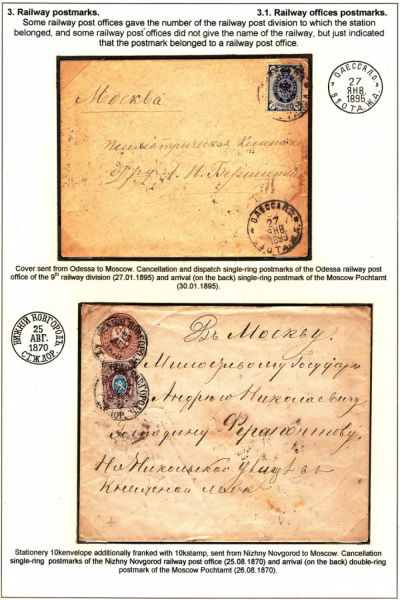 3. Railway postmarks.
3.1. Railway offices postmarks.
Some railway post offices gave the number of the railway post division to which the station
belonged, and some railway post offices did not give the name of the railway, but just indicated
that the postmark belonged to a railway post office.
Москва
ОДЕССА
27
ЯНВ.
1895
27
ЯНВ.
1895
Cover sent from Odessa to Moscow. Cancellation and dispatch single-ring postmarks of the Odessa railway post
office of the 9th railway division (27.01.1895) and arrival (on the back) single-ring postmark of the Moscow Pochtamt
(30.01.1895).
НИЖНІЙ НОВГОРОДЪ
25
АВГ.
1870
СТ.Ж.ДОР.
Въ Москву.
Милостивому Государю
Андрею Николаевичу
Господину Ферапонтову.
На Никольской улице въ
Книжной лавке
Stationery 10kenvelope additionally franked with 10kstamp, sent from Nizhny Novgorod to Moscow. Cancellation
single-ring postmarks of the Nizhny Novgorod railway post office (25.08.1870) and arrival (on the back) double-ring
postmark of the Moscow Pochtamt (26.08.1870).